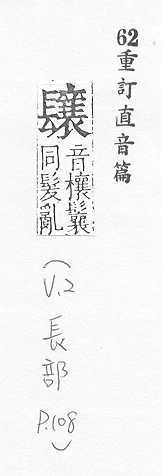 62重訂直音篇
⿰镸襄
音欀鬤
同髮亂
(V.2 長部 P.108)